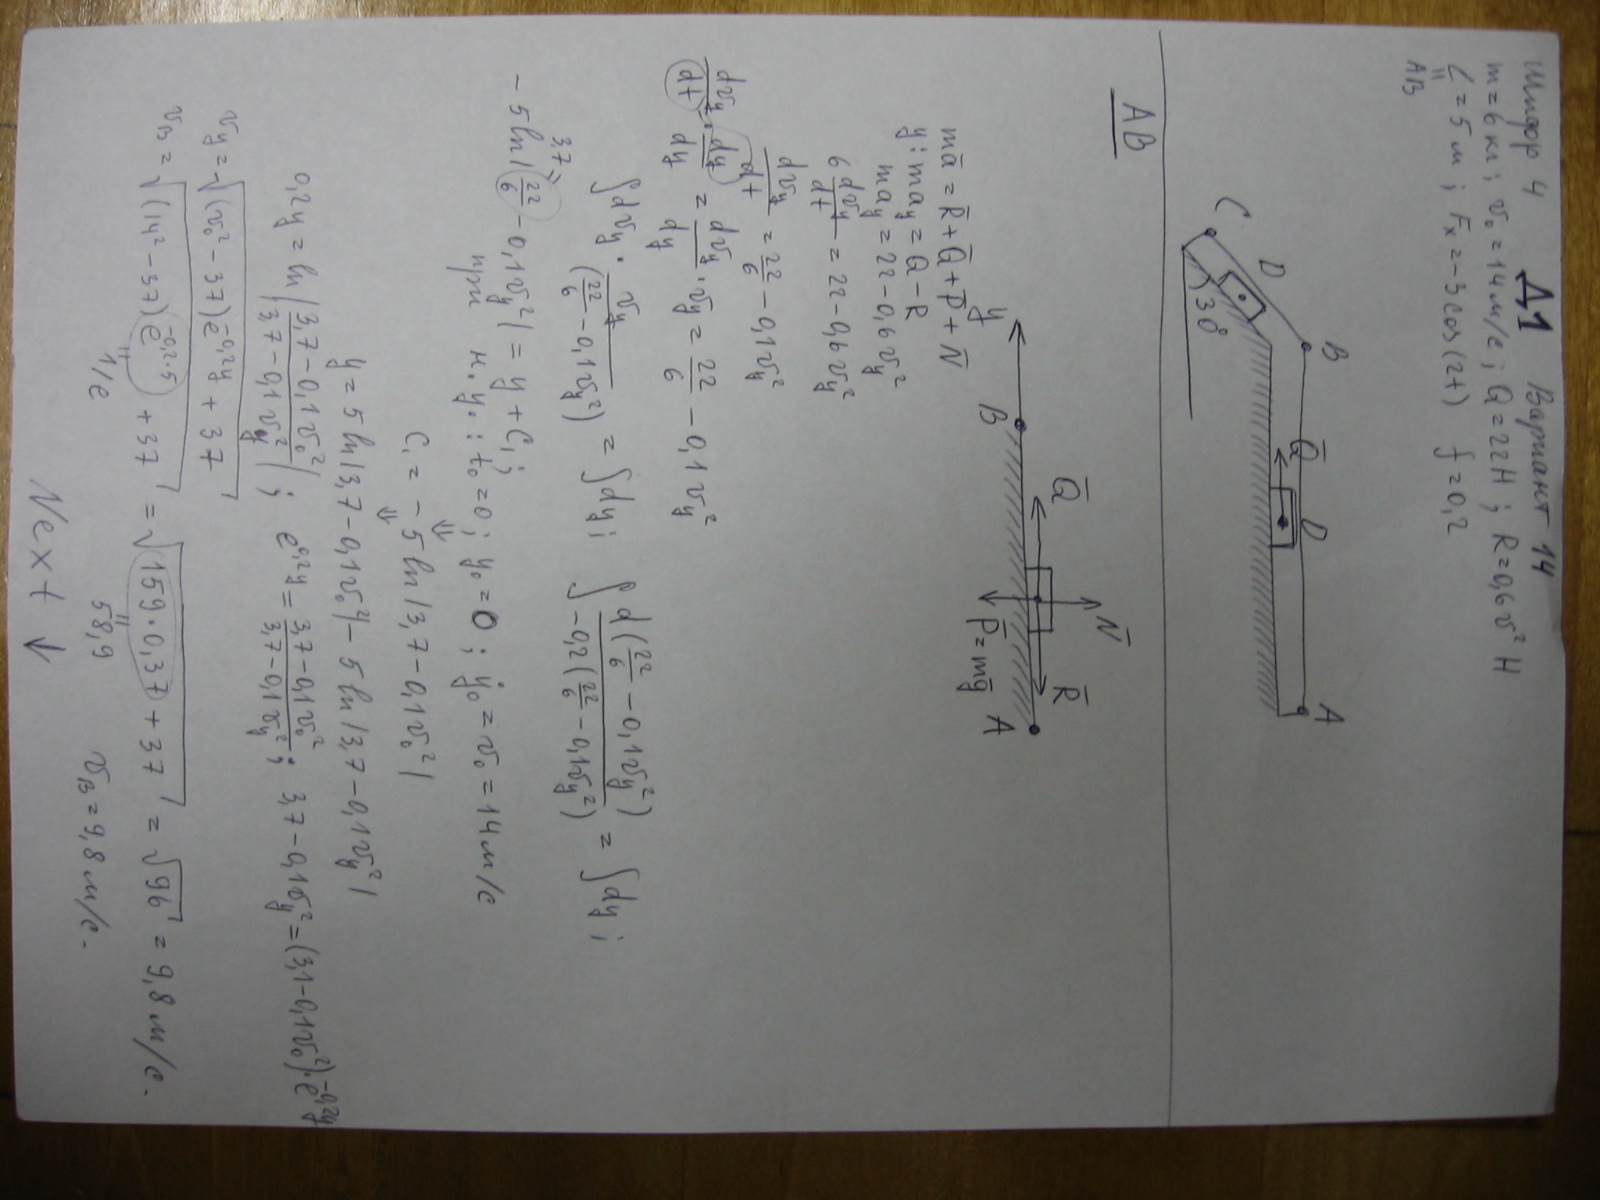 Шифр 4 Д1 Вариант 14
m = 6 кг; v₀ = 14 м/с; Q = 22 Н; R = 0,6v² Н
L = 5 м; Fₓ = -3cos(2t) f = 0,2
AB
C D B Q̄ D A
30°
AB
y B Q̄ N̄ R̄ A
P̄ = mḡ
mā = R̄ + Q̄ + P̄ + N̄
y: ma_y = Q - R
ma_y = 22 - 0,6v_y²
6 dv_y/dt = 22 - 0,6v_y²
dv_y/dt = 22/6 - 0,1v_y²
dv_y/dt · dy/dy = dv_y/dy · v_y = 22/6 - 0,1v_y²
∫dv_y · v_y/(22/6 - 0,1v_y²) = ∫dy; ∫ d(22/6 - 0,1v_y²)/-0,2(22/6 - 0,1v_y²) = ∫dy;
3,7
-5ln|22/6 - 0,1v_y²| = y + C₁;
при н.у.: t₀ = 0; y₀ = 0; ẏ₀ = v₀ = 14 м/с
⇓
C₁ = -5ln|3,7 - 0,1v₀²|
⇓
y = 5ln|3,7 - 0,1v₀²| - 5ln|3,7 - 0,1v_y²|
0,2y = ln|3,7 - 0,1v₀²/3,7 - 0,1v_y²|; e^0,2y = 3,7 - 0,1v₀²/3,7 - 0,1v_y²; 3,7 - 0,1v_y² = (3,1 - 0,1v₀²)·e^-0,2y
v_y = √(v₀² - 37)e^-0,2y + 37
v_B = √(14² - 37)e^-0,2·5 + 37 = √159·0,37 + 37 = √96 = 9,8 м/с.
1/e 58,9 v_B = 9,8 м/с.
Next ↓